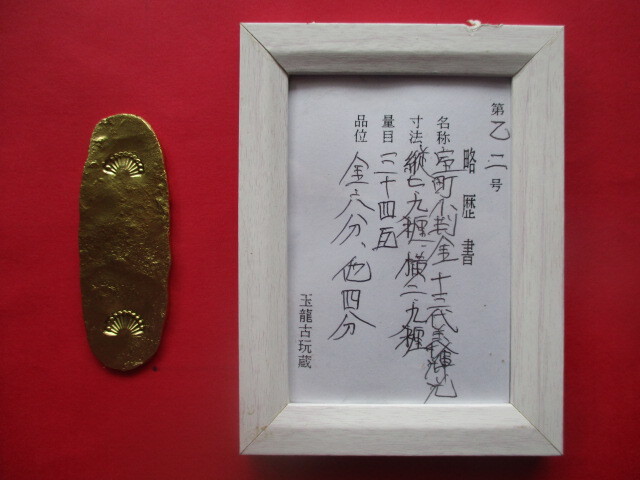 第乙二号
略歴書
名称 室町小判金 十三代義輝光
寸法 縦七.九糎.横二.九糎
量目 三十四瓦
品位 金六分、他四分
玉龍古玩蔵